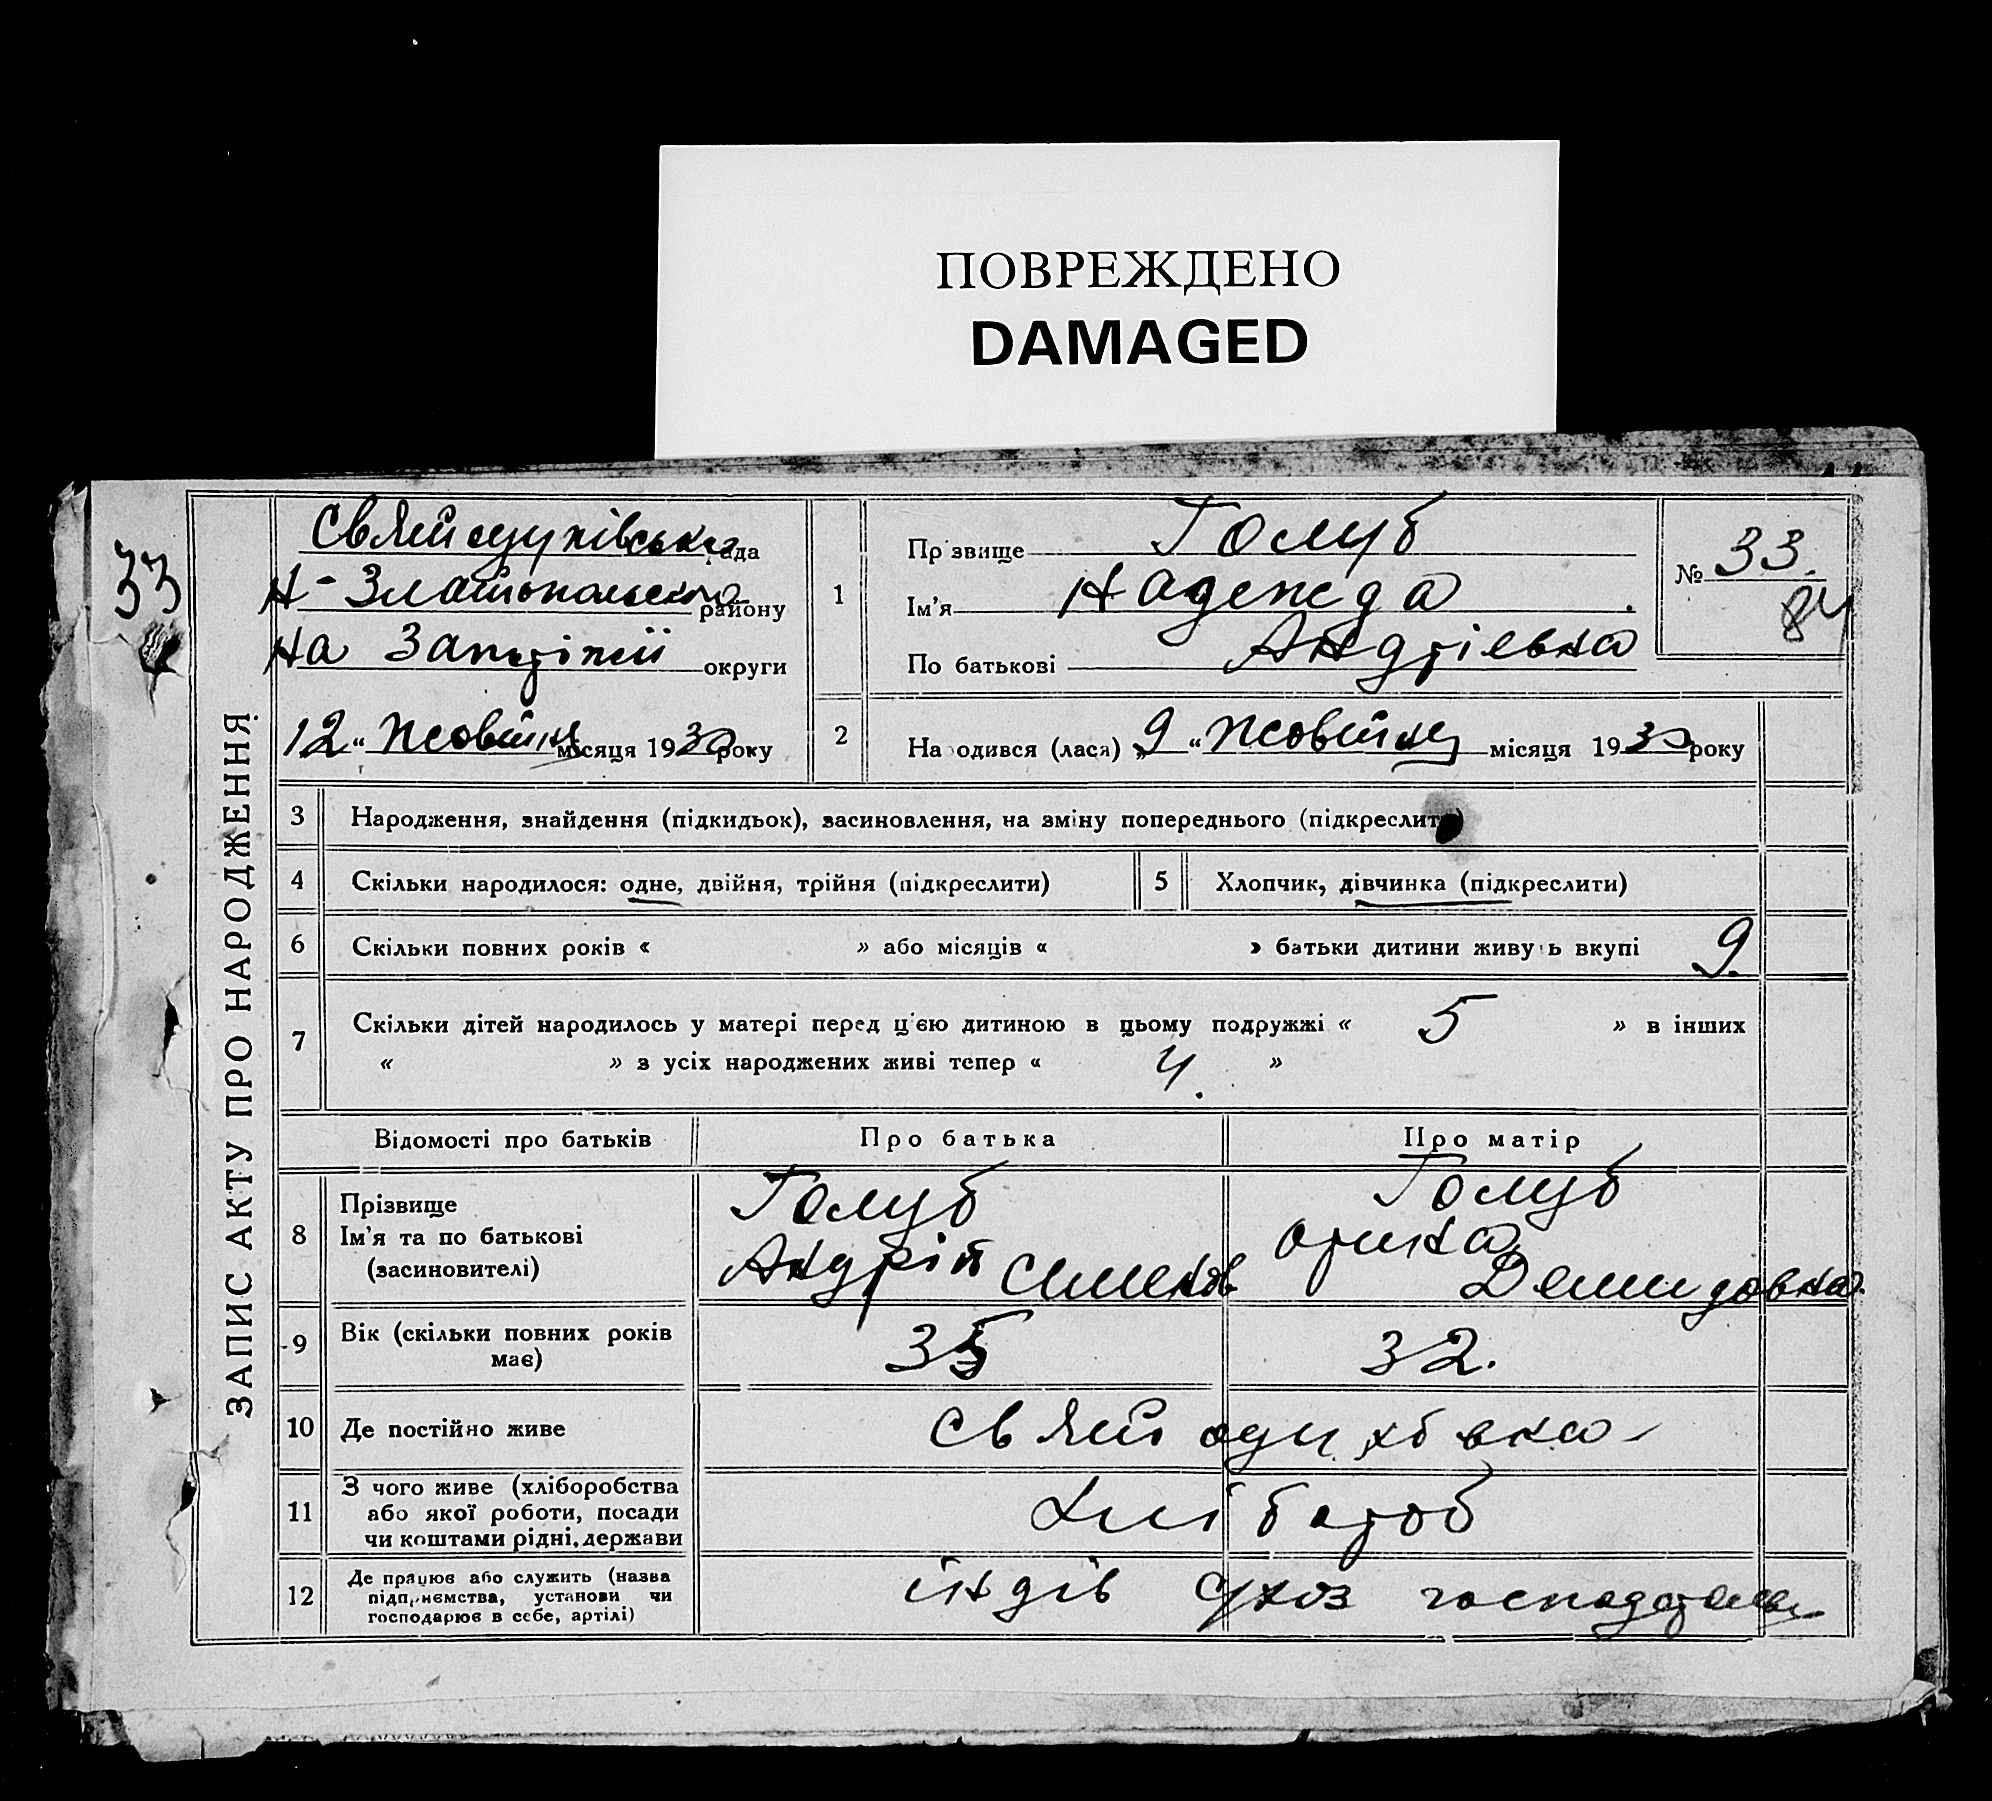 ПОВРЕЖДЕНО
DAMAGED
33
ЗАПИС АКТУ ПРО НАРОДЖЕННЯ
Святодухівська рада
Н-Златопольського району
на Запоріжжі округи
12 " жовтня місяця 1930 року
1
Прізвище Голуб
Ім'я Надежда
По батькові Андріевна
№ 33.
84
2 Народився (лася) „ 9 " жовтня місяця 1930 року
3 Народження, знайдення (підкидьок), засиновлення, на зміну попереднього (підкреслити)
4 Скільки народилося: одне, двійня, трійня (підкреслити)
5 Хлопчик, дівчинка (підкреслити)
6 Скільки повних років « » або місяців « » батьки дитини живуть вкупі 9.
7 Скільки дітей народилось у матері перед ц'єю дитиною в цьому подружжі « 5 » в інших
« » з усіх народжених живі тепер « 4. »
Відомості про батьків Про батька Про матір
8 Прізвище
Ім'я та по батькові
(засиновителі)
Голуб
Андрій Семенов
Голуб
Орина
Демидовна
9 Вік (скільки повних років
має)
35 32.
10 Де постійно живе Святодуховка
11 З чого живе (хліборобства
або якої роботи, посади
чи коштами рідні, держави
Хлібороб
12 Де працює або служить (назва
підприємства, установи чи
господарює в себе, артілі)
індів господарства